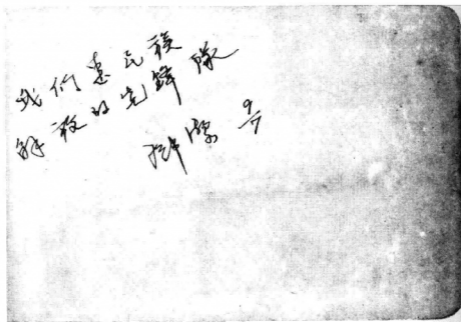 我们是民族
解放的先锋队
9/7